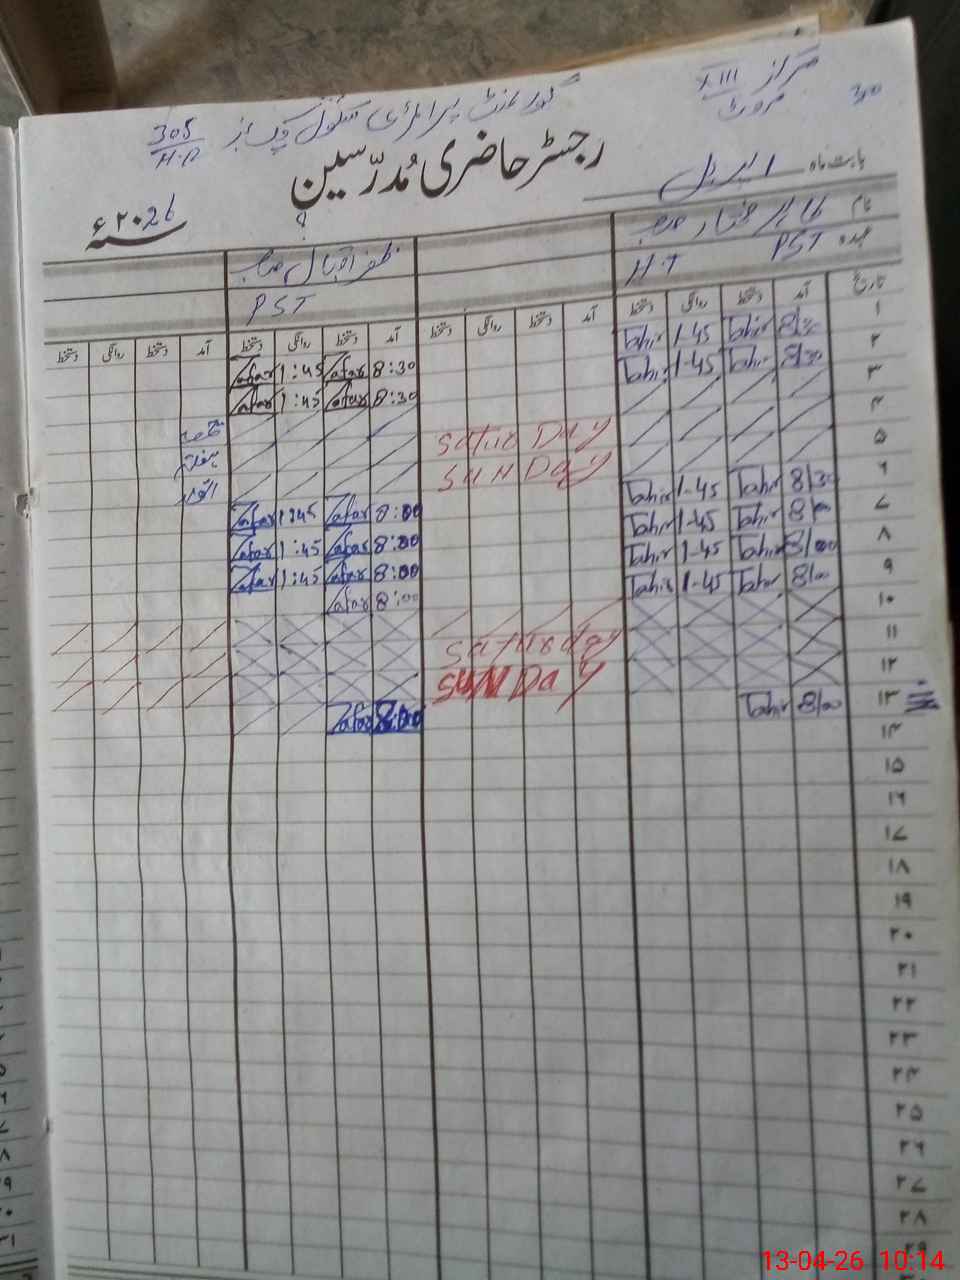 گورنمنٹ پرائمری سکول چک نمبر 305/H.R مرکز XIII مروٹ 30
رجسٹر حاضری مُدرّسین
بابت ماہ اپریل سنہ ۲۰26ء
نام طاہر مختار صاحب ظفر اقبال صاحب
عہدہ PST H.T PST
تاریخ آمد دستخط روانگی دستخط آمد دستخط روانگی دستخط آمد دستخط روانگی دستخط آمد دستخط روانگی دستخط
۱ 8/30 Tahir 1-45 Tahir 8:30 Zafar 1:45 Zafar
۲ 8/30 Tahir 1-45 Tahir 8:30 Zafar 1:45 Zafar
۳
۴ Satur Day ہفتہ
۵ SUN Day اتوار
۶ 8/30 Tahir 1-45 Tahir 8:00 Zafar 1:45 Zafar
۷ 8/00 Tahir 1-45 Tahir 8:00 Zafar 1:45 Zafar
۸ 8/00 Tahir 1-45 Tahir 8:00 Zafar 1:45 Zafar
۹ 8/00 Tahir 1-45 Tahir 8:00 Zafar
۱۰
۱۱ Saturday
۱۲ SUN Day
۱۳ 8/00 Tahir 8:00 Zafar
۱۴
۱۵
۱۶
۱۷
۱۸
۱۹
۲۰
۲۱
۲۲
۲۳
۲۴
۲۵
۲۶
۲۷
۲۸
۲۹
13-04-26 10:14